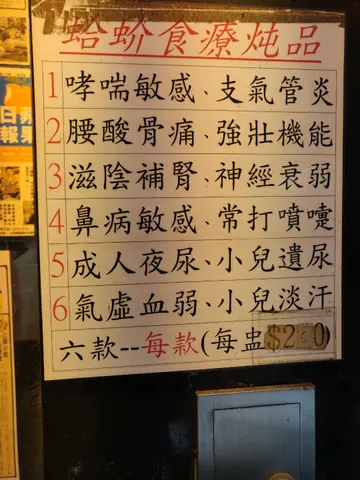 蛤蚧食療炖品
1 哮喘敏感、支氣管炎
2 腰酸骨痛、強壯機能
3 滋陰補腎、神經衰弱
4 鼻病敏感、常打噴嚏
5 成人夜尿、小兒遺尿
6 氣虛血弱、小兒淡汗
六款--每款(每盅$2 0